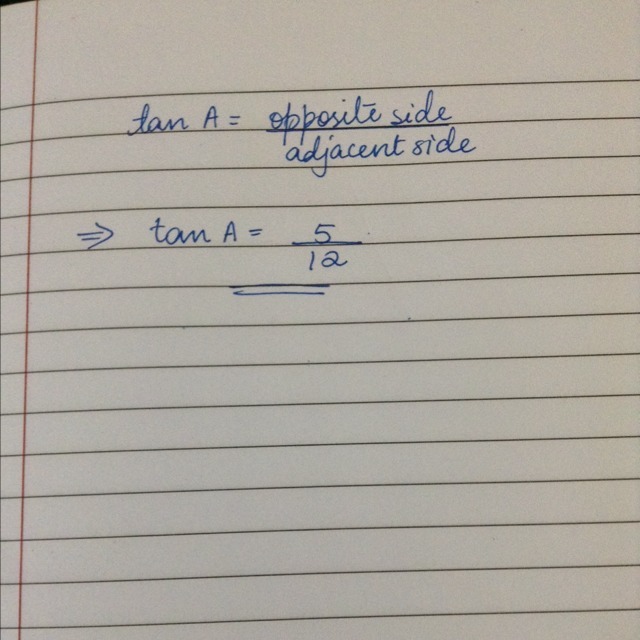 tan A = opposite side
adjacent side
⇒ tan A = 5
12